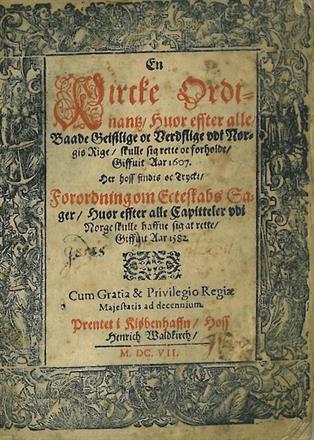 En
Kircke Ordi-
nantz/ Huor effter alle/
Baade Geistlige oc Verdslige vdi Nor-
gis Rige/ skulle sig rette oc forholdt/
Giffuit Aar 1607.
Her hoss findis oc Tryckt/
Forordning om Ecteskabs Sa-
ger/ Huor effter alle Capitteler vdi
Norge skulle haffue sig at rette/
Giffuit Aar 1582.
Cum Gratia & Privilegio Regiæ
Majestatis ad decennium.
Prentet i Kiøbenhaffn/ Hoss
Henrich Waldkirch/
M. DC. VII.